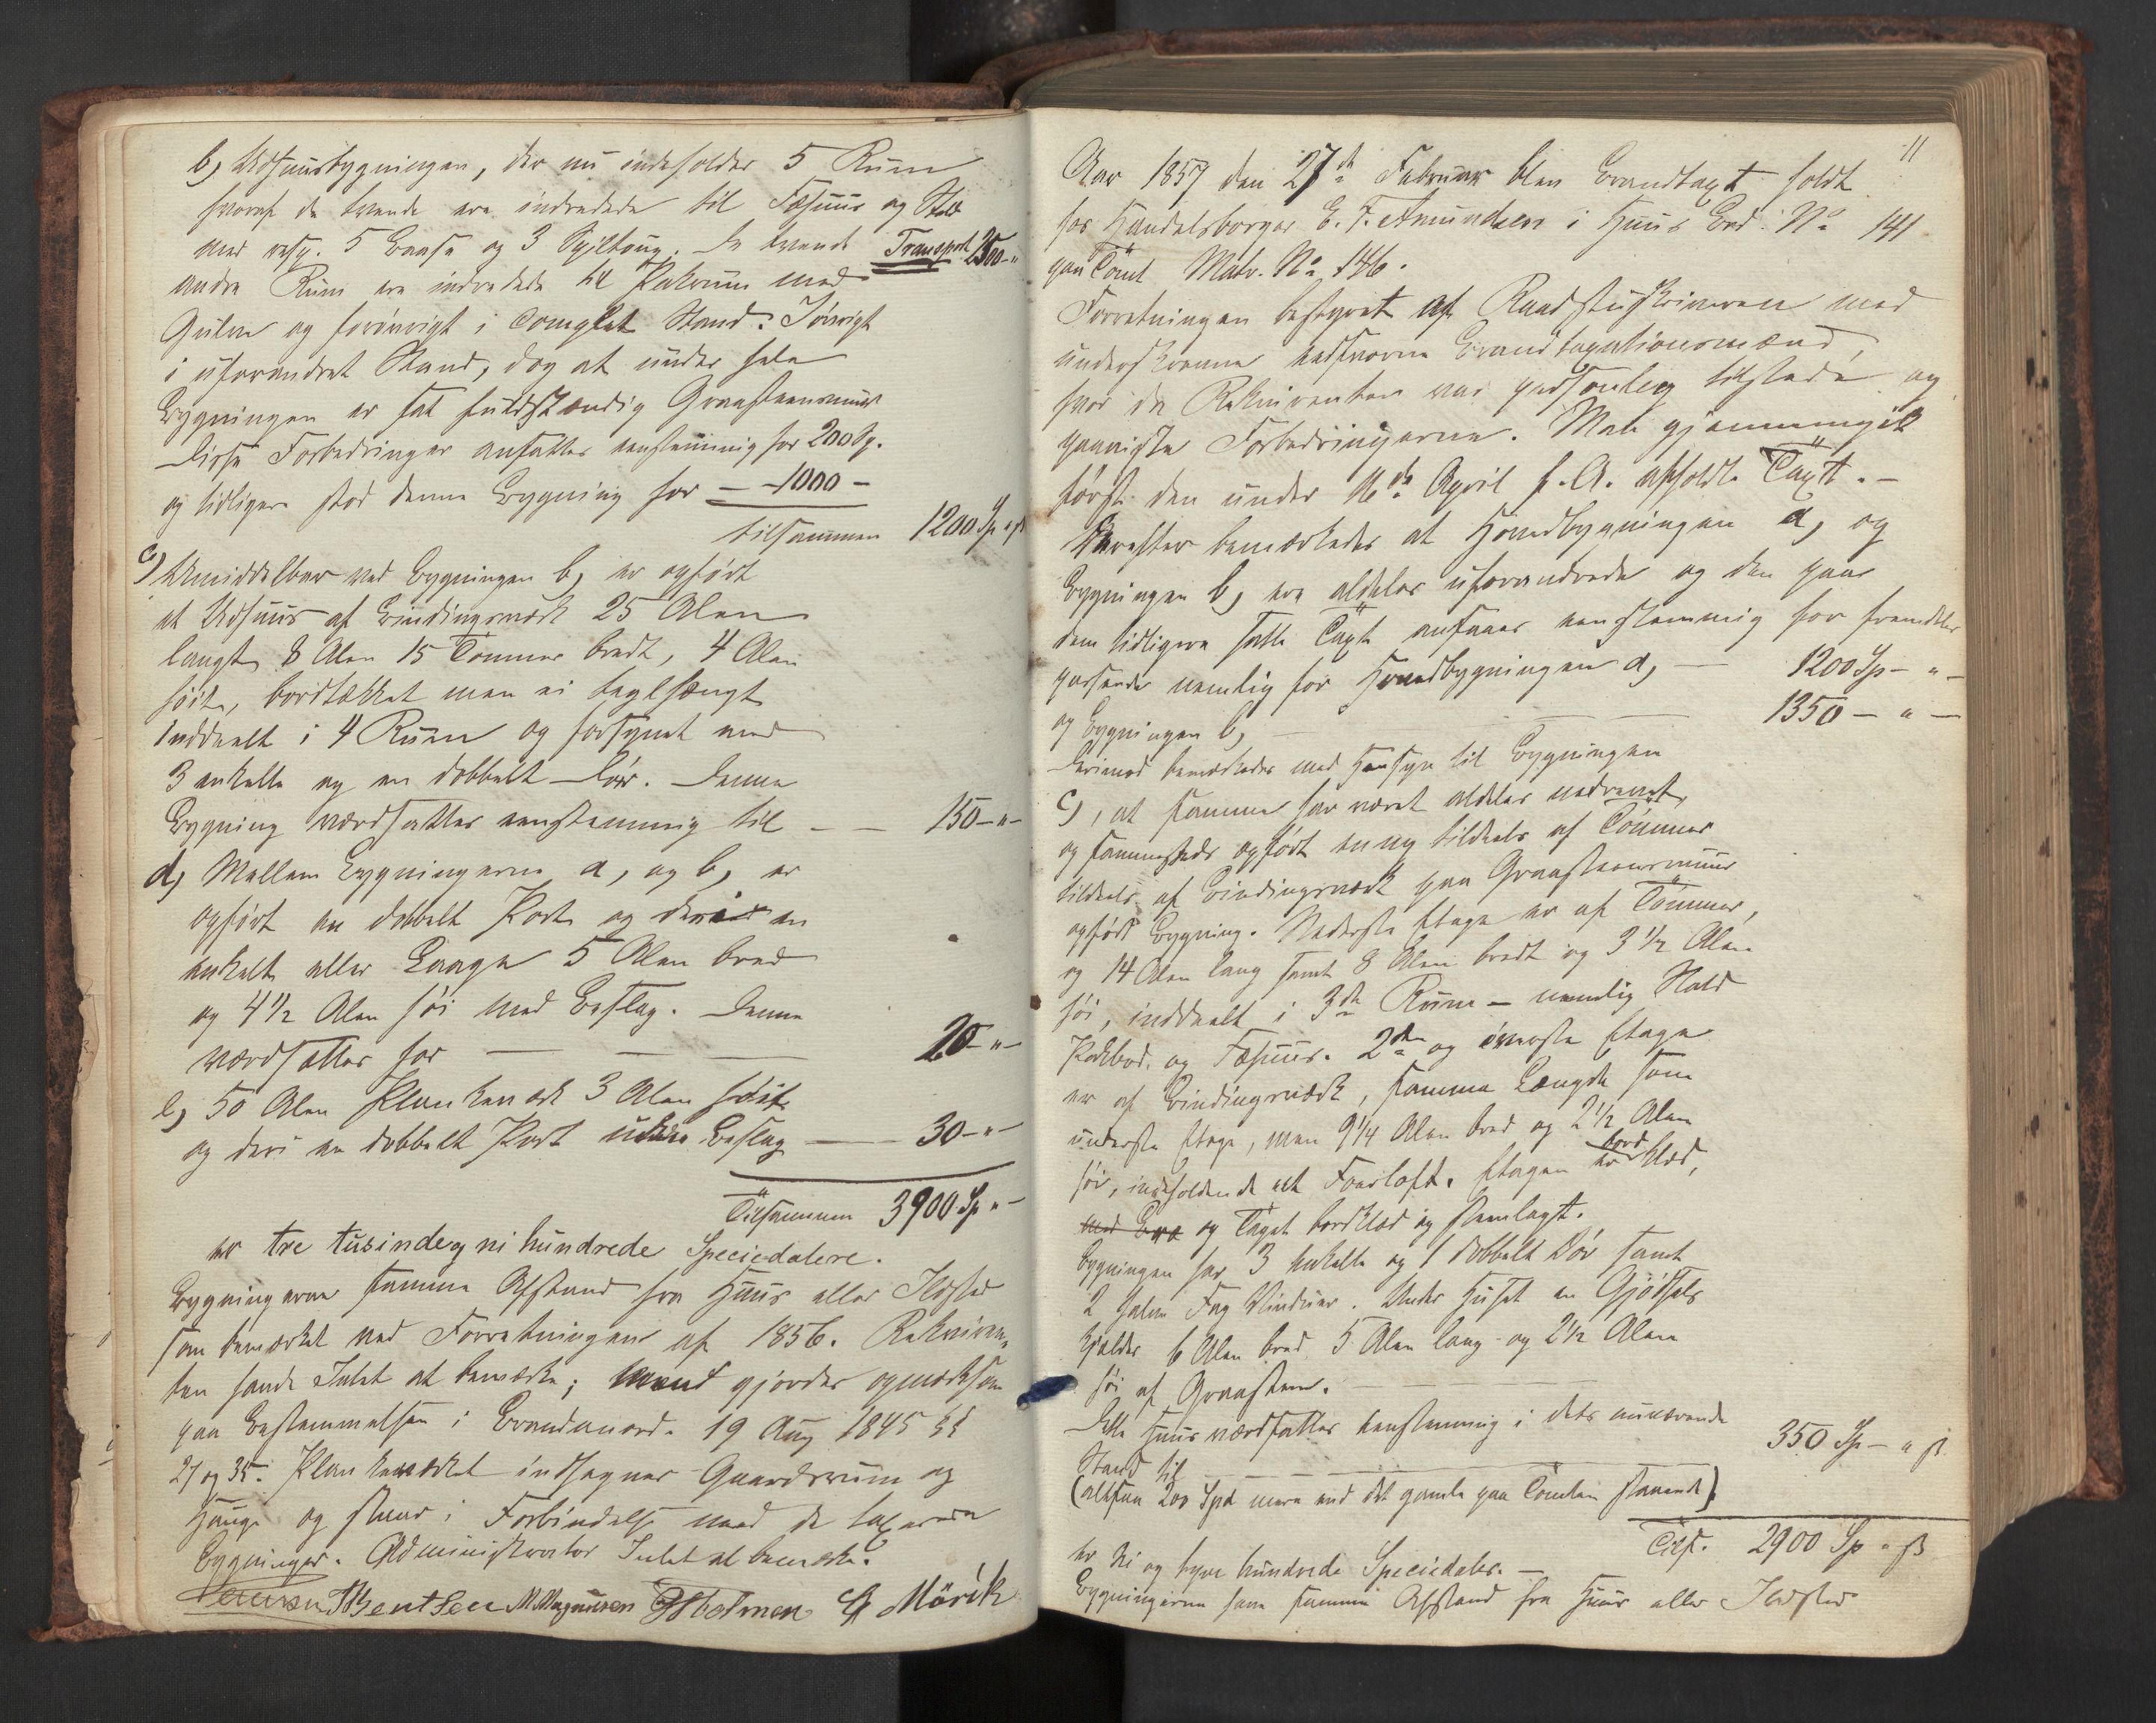 b, Udhuusbygningen, der nu indeholder 5 Rum
hvoraf de tvende ere indredede til Fæhuus og Stald
med resp. 5 Baase og 3 Spiltoug. De tvende Transport 2500 - "
andre Rum ere indredede til Pakrum med
Gulve og forøvrigt i complet Stand. Iøvrigt
i uforandret Stand, dog at under hele
Bygningen er sat fuldstændig Graasteensmuur
Disse Forbedringer ansattes eenstemmig for 200 Sp.
og tidligere stod denne Bygning for — 1000 —
tilsammen 1200 Sp " ß
c) Umiddelbar ved Bygningen b, er opført
et Udhuus af Bindingsværk 25 Alen
langt, 8 Alen 15 Tommer bredt, 4 Alen
høit, bordtækket men ei teglhængt
inddeelt i 4 Rum og forsynet med
3 enkelte og en dobbelt Dør. Denne
Bygning værdsattes eenstemmig til — — 150 - " -
d, Mellem Bygningerne a, og b, er
opført en dobbelt Port og deri en
enkelt eller Laage 5 Alen bred
og 4 1/2 Alen høi med Beslag. Denne
værdsattes for — — — 20 - " -
e, 50 Alen Plankeværk 3 Alen høit
og deri en dobbelt Port uden Beslag — 30 - " -
Tilsammen 3900 Sp " -
er tre tusinde og ni hundrede Speciedalere.
Bygningerne samme Afstand fra Huus eller Ildsted
som bemærket ved Forretningen af 1856. Rekviren-
ten havde Intet at bemærke; men gjordes opmærksom
paa Bestemmelsen i Brandanord. 19 Aug 1845 §§
27 og 35. Plankeværket indhegner Gaardsrum og
Hauge og staar i Forbindelse med de taxerede
Bygninger. Administrator Intet at bemærke.
Bentsen M. Magnusen Holmen Mörch
11
Aar 1857 den 27de Februar blev Brandtaxt holdt
hos Handelsborger E. F. Amundsen i Huus Brd. No 141
paa Tomt Matr. No 146.
Forretningen bestyret af Raadstuskriveren med
underskrevne edsvorne Brandtaxationsmænd,
hvor da Rekvirenten var personlig tilstede og
paaviste Forbedringerne. Man gjennemgik
først den under 16de April f. A. afholdte Taxt. —
Derefter bemærkedes at Hovedbygningen a, og
Bygningen b, ere aldeles uforandrede og den paa
dem tidligere satte Taxt ansaaes eenstemmig for fremdeles
passende nemlig for Hovedbygningen a, — 1200 Sp - " -
og Bygningen b, — — — 1350 — " —
Derimod bemærkedes med Hensyn til Bygningen
c), at samme har været aldeles nedrevet,
og sammesteds opført en ny tildeels af Tømmer
tildeels af Bindingsværk paa Graasteensmuur
opført Bygning. Nederste Etage er af Tømmer,
og 14 Alen lang samt 8 Alen bredt og 3 1/2 Alen
høi, inddeelt i 3de Rum — nemlig Stald
Pakbod og Fæhuus. 2den og øverste Etage
er af Bindingsværk, samme Længde som
underste Etage, men 9 1/4 Alen bred og 2 1/2 Alen
høi, indeholdende et Foerloft. Etagen er bordklæd,
og Taget bordklæd og steenlagt.
Bygningen har 3 enkelte og 1 dobbelt Dør samt
2 halve Fag Vinduer. Under Huset en Gjødsels
kjelder 6 Alen bred 5 Alen lang og 2 1/2 Alen
høi af Graasteen.
Dette Huus værdsattes eenstemmig i dets nuværende
Stand til — — — 350 Sp - " ß
(altsaa 200 Spd mere end det gamle paa Tomten staaende)
Tils. 2900 Sp " ß
er ni og tyve hundrede Speciedaler. —
Bygningerne have samme Afstand fra Huus eller Ildsted